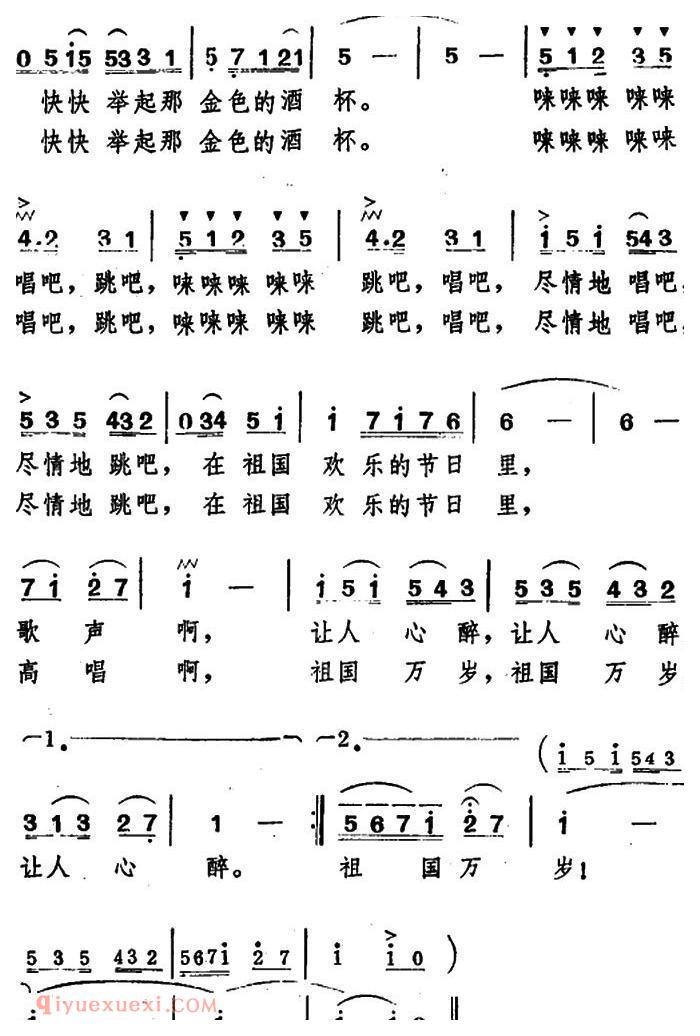 0 5 i5 533 1 | 5 7 121 | 5 — | 5 — | 512 35
快快 举起那 金色的酒 杯。 唻唻唻 唻唻
快快 举起那 金色的酒 杯。 唻唻唻 唻唻
4.2 31 | 512 35 | 4.2 31 | i5i 543
唱吧，跳吧，唻唻唻 唻唻 跳吧，唱吧，尽情地 唱吧，
唱吧，跳吧，唻唻唻 唻唻 跳吧，唱吧，尽情地 唱吧，
535 432 | 034 5i | i 7i76 | 6 — | 6 —
尽情地 跳吧，在 祖国 欢 乐的节日 里，
尽情地 跳吧，在 祖国 欢 乐的节日 里，
7i 27 | i — | i5i 543 | 535 432
歌 声 啊， 让人 心 醉，让人 心 醉
高 唱 啊， 祖国 万 岁，祖国 万 岁
1. 2. (i5i 543
313 27 | 1 — :‖ 567i 27 | i —
让人 心 醉。 祖 国 万 岁！
535 432 | 567i 27 | i i0 )
qiyuexuexi.COM